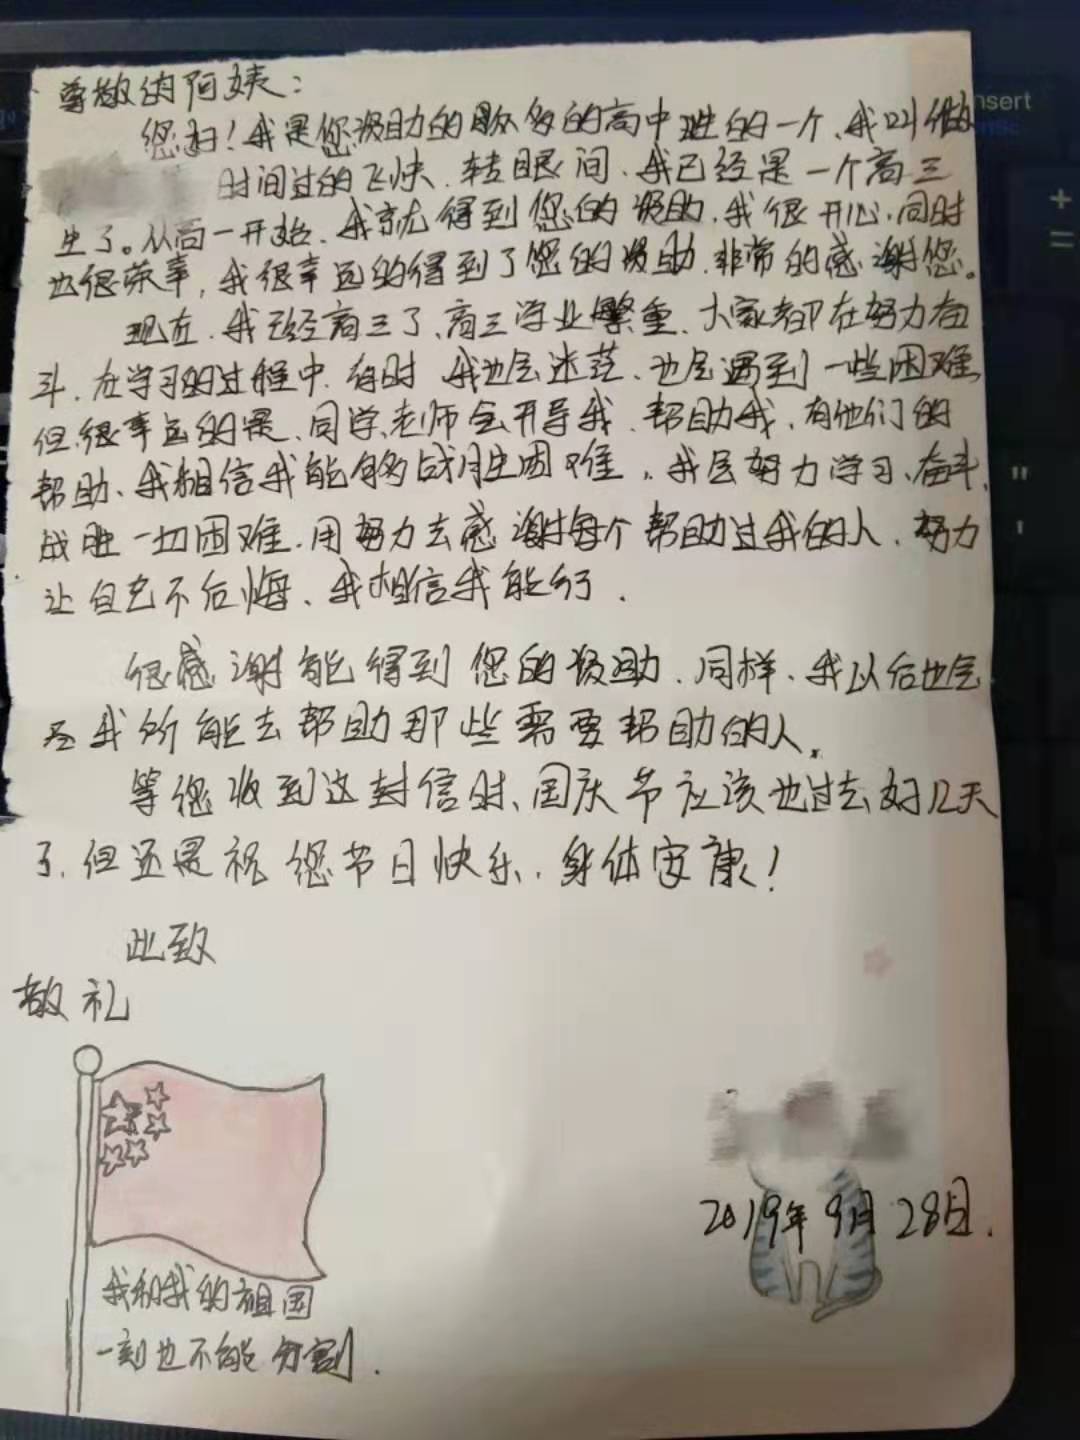 尊敬的阿姨：
您好！我是您资助的众多的高中班的一个、我叫
时间过的飞快、转眼间、我已经是一个高三
生了。从高一开始、我就得到您的资助、我很开心、同时
也很荣幸，我很幸运的得到了您的资助、非常的感谢您。
现在、我已经高三了、高三学业繁重、大家都在努力奋
斗、在学习的过程中、有时我也会迷茫、也会遇到一些困难、
但很幸运的是、同学、老师会开导我、帮助我、有他们的
帮助、我相信我能够战胜困难。我会努力学习、奋斗、
战胜一切困难、用努力去感谢每个帮助过我的人、努力
让自己不后悔、我相信我能行.
很感谢能得到您的资助、同样、我以后也会
尽我所能去帮助那些需要帮助的人.
等您收到这封信时、国庆节应该也过去好几天
了、但还是祝您节日快乐、身体安康！
此致
敬礼
2019年9月28日.
我和我的祖国
一刻也不能分割.
nsert
+
=
"
'